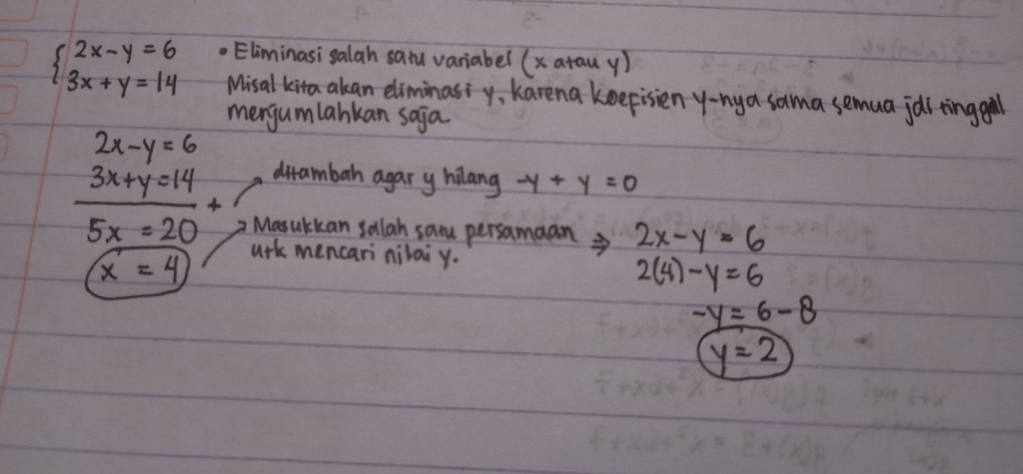 2x - y = 6
3x + y = 14
• Eliminasi salah satu variabel (x atau y)
Misal kita akan eliminasi y, karena koefisien y-nya sama semua jdi tinggal
menjumlahkan saja.
2x - y = 6
3x + y = 14
+
5x = 20
x = 4
ditambah agar y hilang -y + y = 0
Masukkan salah satu persamaan
utk mencari nilai y.
⇒ 2x - y = 6
2(4) - y = 6
-y = 6 - 8
y = 2